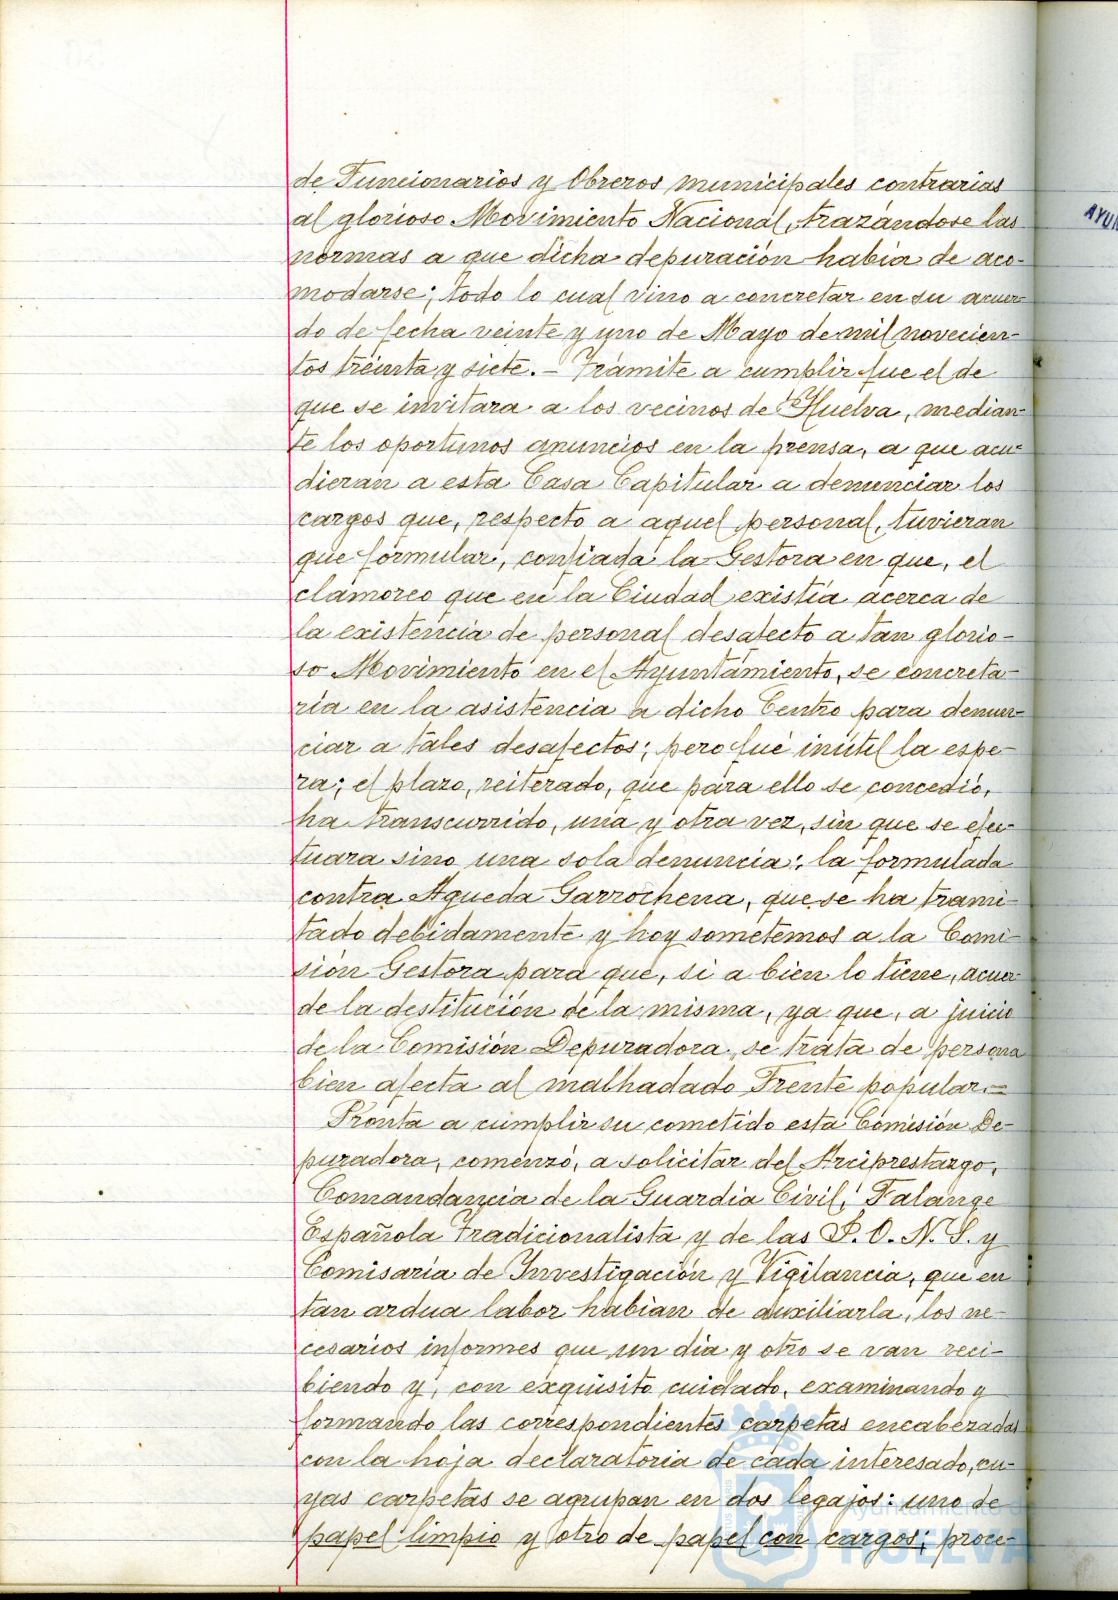 de Funcionarios y Obreros municipales contrarias
al glorioso Movimiento Nacional, trazándose las
normas a que dicha depuración habia de aco-
modarse; todo lo cual vino a concretar en su acuer-
do de fecha veinte y uno de Mayo de mil novecien-
tos treinta y siete. - Trámite a cumplir fue el de
que se invitara a los vecinos de Huelva, median-
te los oportunos anuncios en la prensa, a que acu-
dieran a esta Casa Capitular a denunciar los
cargos que, respecto a aquel personal, tuvieran
que formular, confiada la Gestora en que, el
clamoreo que en la Ciudad existía acerca de
la existencia de personal desafecto a tan glorio-
so Movimiento en el Ayuntamiento, se concreta-
ria en la asistencia a dicho Centro para denun-
ciar a tales desafectos; pero fué inútil la espe-
ra; el plazo, reiterado, que para ello se concedió,
ha transcurrido, una y otra vez, sin que se efec-
tuara sino una sola denuncia: la formulada
contra Agueda Garrochena, que se ha trami-
tado debidamente y hoy sometemos a la Comi-
sión Gestora para que, si a bien lo tiene, acuer-
de la destitución de la misma, ya que, a juicio
de la Comisión Depuradora, se trata de persona
bien afecta al malhadado Frente popular.=
Pronta a cumplir su cometido esta Comisión De-
puradora, comenzó, a solicitar del Arciprestazgo,
Comandancia de la Guardia Civil, Falange
Española Tradicionalista y de las J. O. N. S. y
Comisaría de Investigación y Vigilancia, que en
tan ardua labor habian de auxiliarla, los ne-
cesarios informes que un dia y otro se van reci-
biendo y, con exquisito cuidado, examinando y
formando las correspondientes carpetas encabezadas
con la hoja declaratoria de cada interesado, cu-
yas carpetas se agrupan en dos legajos: uno de
papel limpio y otro de papel con cargos; proce-
Ayuntamiento de
HUELVA
AYUN